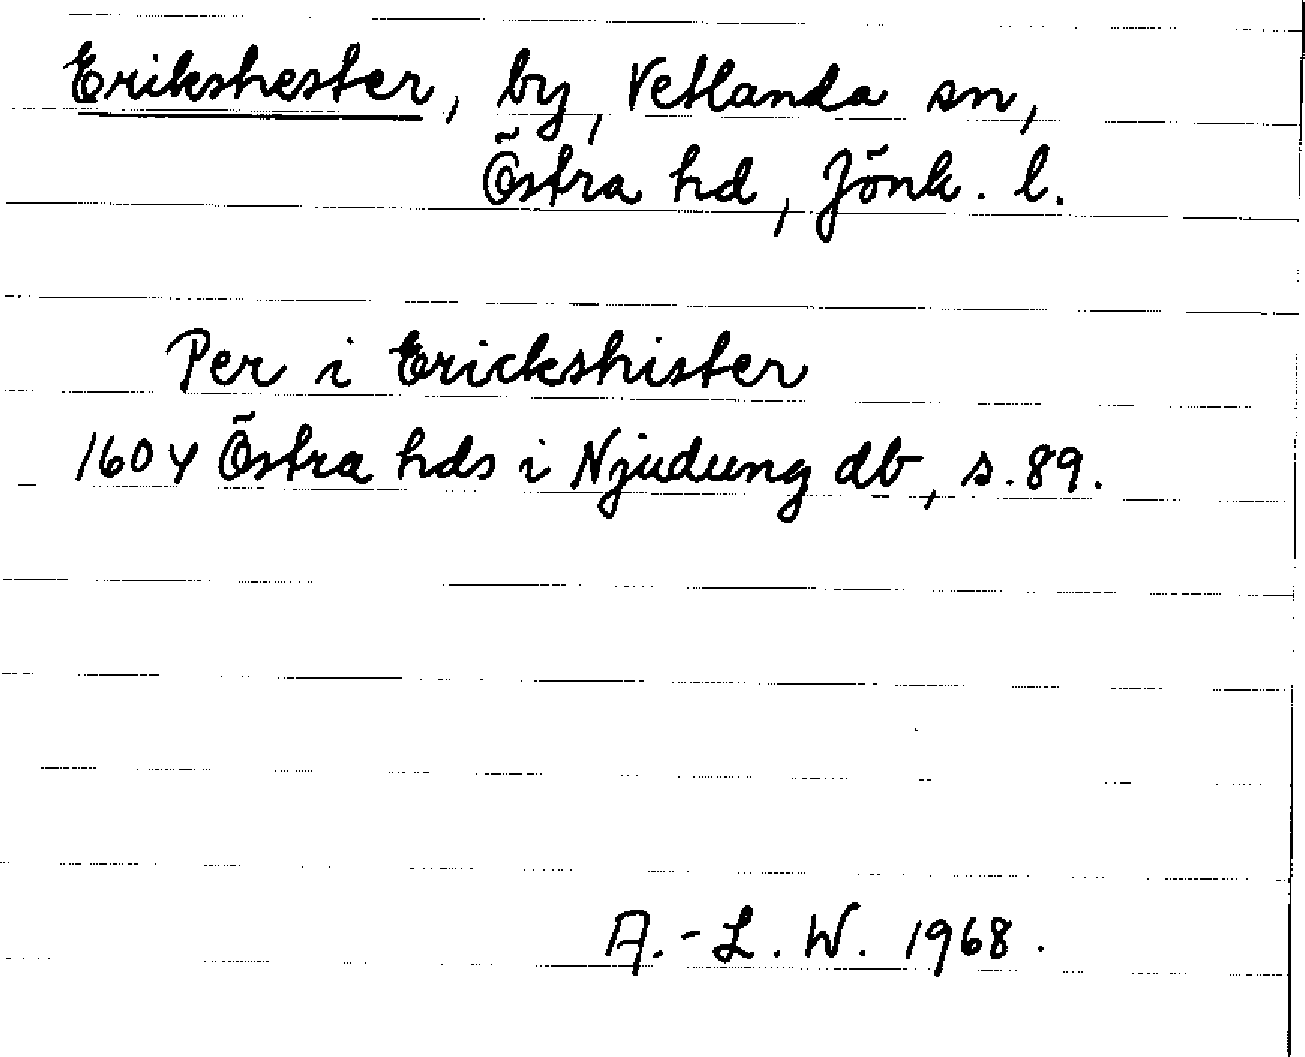 Erikshester, by, Vetlanda sn,
Östra hd, Jönk. l.
Per i Erickshister
1604 Östra hds i Njudung db, s. 89.
A.-L. W. 1968.